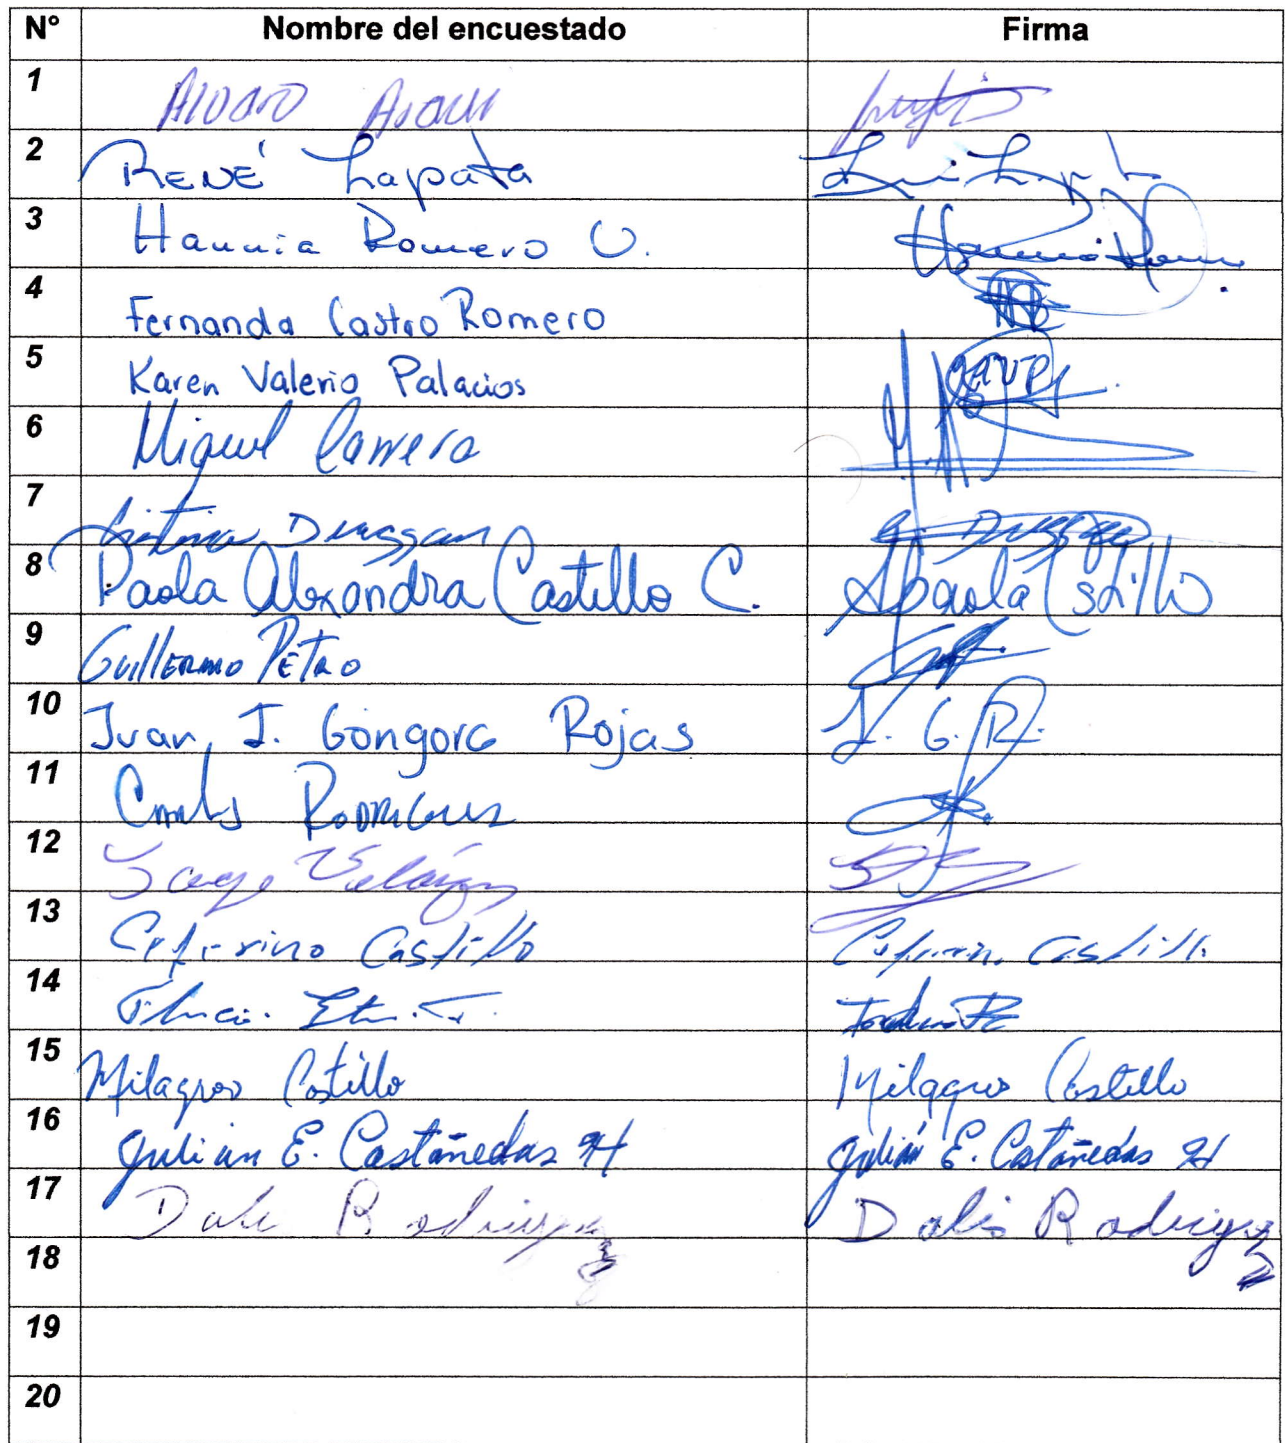 N° Nombre del encuestado Firma
1 Alvaro
2 RENÉ Zapata
3 Hannia Romero U.
4 Fernanda Castro Romero
5 Karen Valerio Palacios
6 Miguel Carrera
7 Duggan Duggan
8 Paola Alexandra Castillo C. Paola Castillo
9 GUILLERMO PETRO
10 Juan J. Góngora Rojas J. G. R.
11 Carlos RODRIGUEZ
12
13 Ceferino Castillo Castillo
14
15 Milagros Castillo Milagros Castillo
16 Julian E. Castañedas H Julián E. Castañedas H
17 Rodriguez Dalis Rodriguez
18
19
20